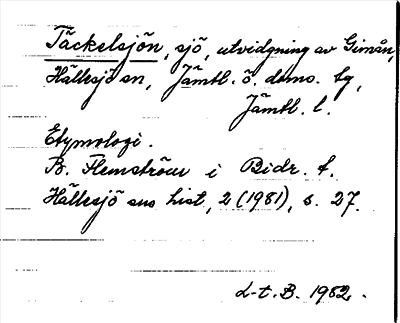 Täckelsjön, sjö, utvidgning av Gimån,
Hällesjö sn, Jämtl. ö. doms. tg,
Jämtl. l.
Etymologi.
B. Flemström i Bidr. t.
Hällesjö sns hist, 2 (1981), s. 27.
L-t. B. 1982.